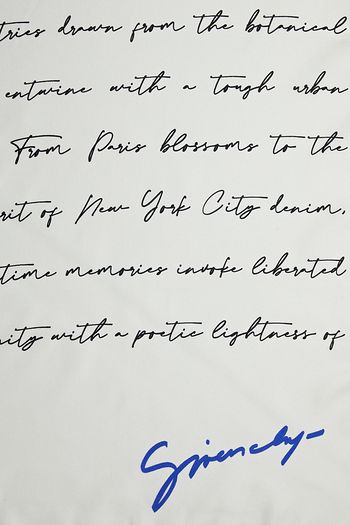 tries drawn from the botanical
entwine with a tough urban
From Paris blossoms to the
rit of New York City denim,
time memories invoke liberated
nity with a poetic lightness of
Givenchy